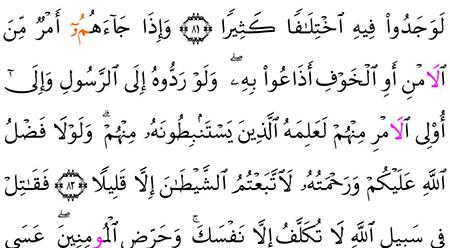 لَوَجَدُواْ فِيهِ اِ۪خْتِلَٰفٗا كَثِيرٗا ۝٨١ وَإِذَا جَآءَهُمُۥٓ أَمْرٞ مِّنَ
اَ۬لَامْنِ أَوِ اِ۬لْخَوْفِ أَذَاعُواْ بِهِۦۖ وَلَوْ رَدُّوهُ إِلَى اَ۬لرَّسُولِ وَإِلَىٰٓ
أُوْلِى اِ۬لَامْرِ مِنْهُمْ لَعَلِمَهُ اُ۬لذِينَ يَسْتَنۢبِطُونَهُۥ مِنْهُمْۖ وَلَوْلَا فَضْلُ
اُ۬للَّهِ عَلَيْكُمْ وَرَحْمَتُهُۥ لَاتَّبَعْتُمُ اُ۬لشَّيْطَٰنَ إِلَّا قَلِيلٗا ۝٨٢ فَقَٰتِلْ
فِى سَبِيلِ اِ۬للَّهِ لَا تُكَلَّفُ إِلَّا نَفْسَكَۖ وَحَرِّضِ اِ۬لْمُومِنِينَۖ عَسَى